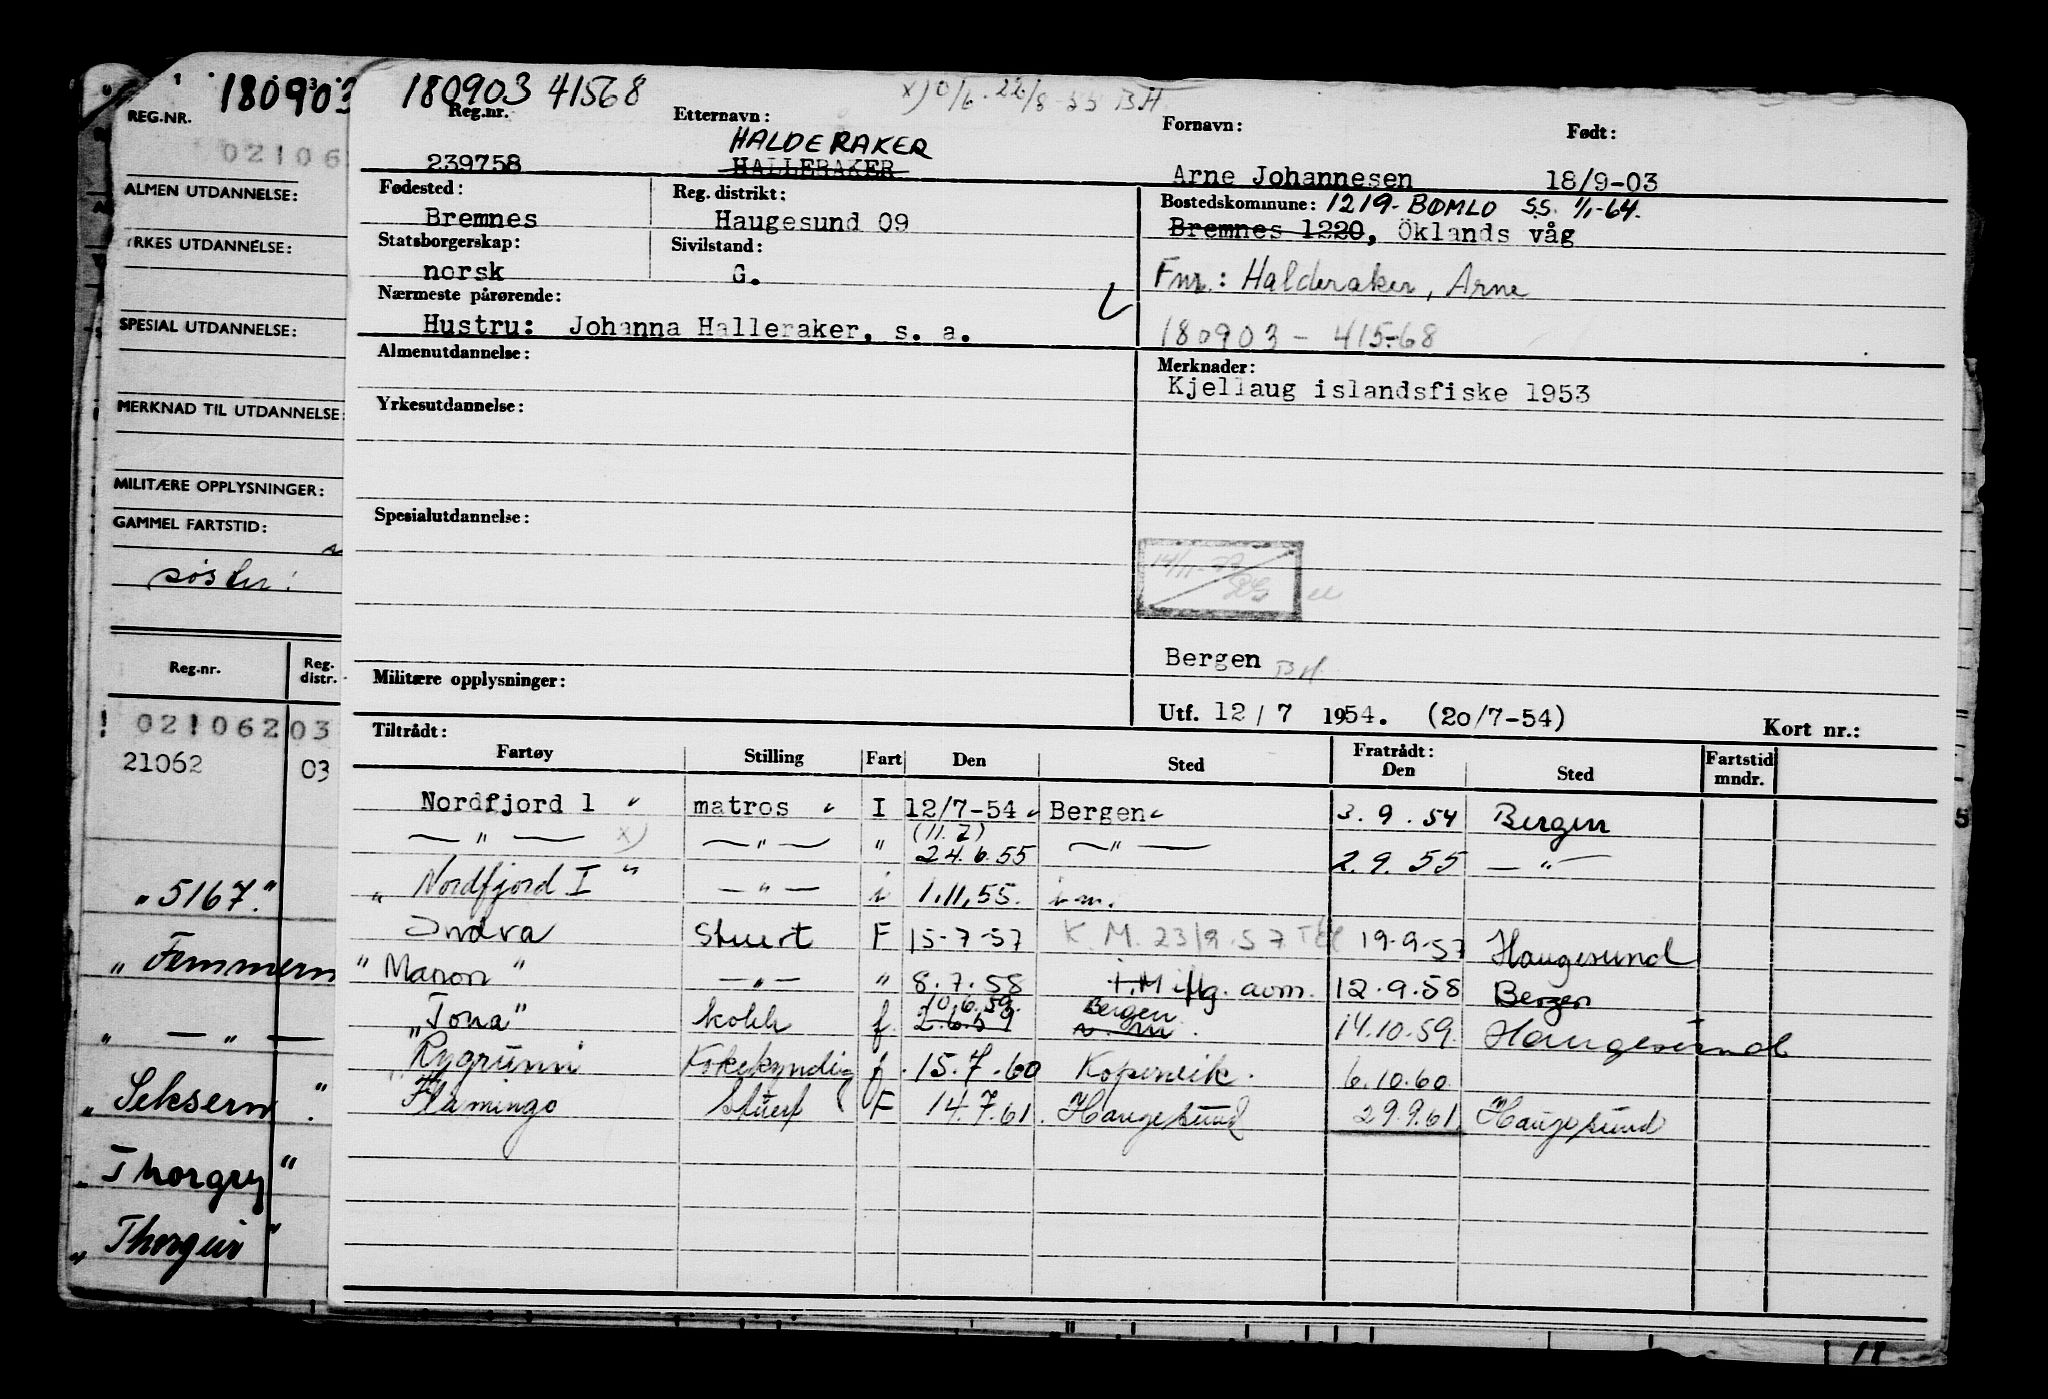 180903
REG.NR.
02106
ALMEN UTDANNELSE:
YRKES UTDANNELSE:
SPESIAL UTDANNELSE:
MERKNAD TIL UTDANNELSE:
MILITÆRE OPPLYSNINGER:
GAMMEL FARTSTID:
Reg.nr. Reg. distr.
021062 03
21062 03
"5167."
"Femmern
" — " —
"Seksern".
"Thorgry"
180903 41568 x) 0/6. 22/8-55 BH
Reg.nr. Etternavn: Fornavn: Født:
HALDERAKER
239758 HALLERAKER Arne Johannesen 18/9-03
Fødested: Reg. distrikt: Bostedskommune: 1219- BØMLO S.S. 1/1-64.
Bremnes Haugesund 09 Bremnes 1220, Öklands våg
Statsborgerskap: Sivilstand:
norsk G. Fnr.: Halderaker, Arne
Nærmeste pårørende:
Hustru: Johanna Halleraker, s. a. 180903 - 415-68
Almenutdannelse: Merknader:
Kjellaug islandsfiske 1953
Yrkesutdannelse:
Spesialutdannelse:
Bergen BH.
Militære opplysninger:
Utf. 12/ 7 1954. (20/7-54) Kort nr.:
Tiltrådt: Fratrådt:
Fartøy Stilling Fart Den Sted Den Sted Fartstid mndr.
Nordfjord 1 " matros " I 12/7-54 Bergen 3.9.54 Bergen
— " — x) — " — " (11.7) 24.6.55 — " — 2.9.55 — " —
"Nordfjord I" — " — i 1.11.55. i.m.
Indra Stuert F 15-7-57 K.M. 23/9.57 19-9-57 Haugesund
"Manon" — " — " 8.7.58 i.M iflg. avm. 12.9.58 Bergen
"Tona" kokk f 10.6.59. 2.6.59 Bergen 14.10.59. Haugesund
Rygrunn Kokekyndig f. 15.7.60 Kopervik. 6.10.60
Flamingo Stuert F 14.7.61. Haugesund 29.9.61. Haugesund